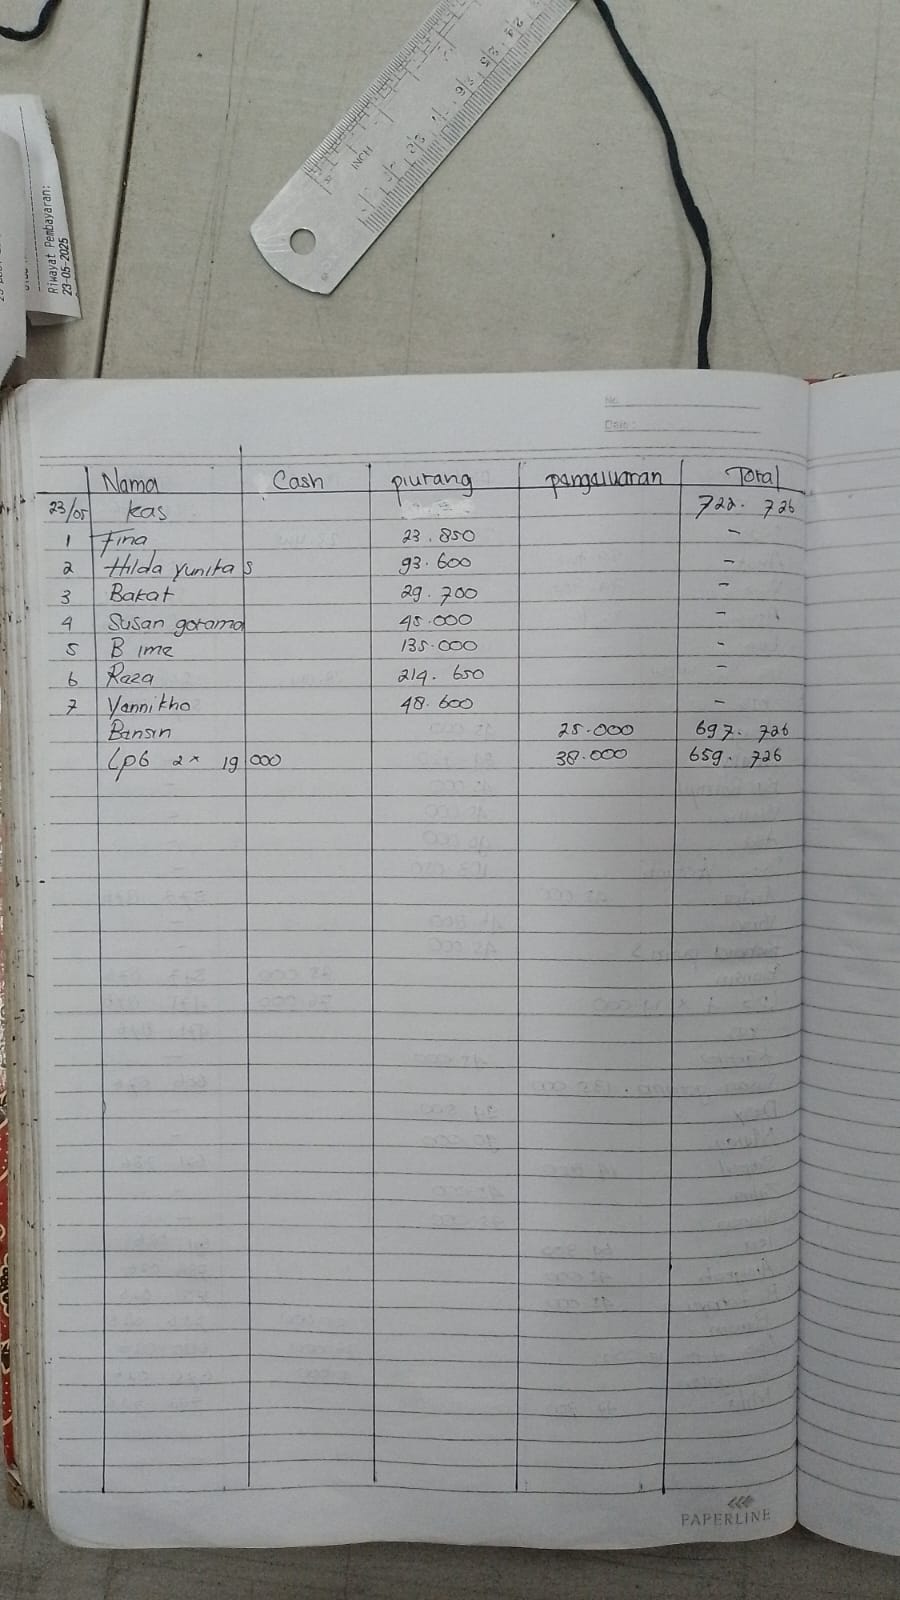 Riwayat Pembayaran:
23-05-2025
INOX
No.
Date:
Nama Cash piutang pangaluaran Total
23/05 kas 722. 726
1 Fina 23.850 -
2 Hilda yunitas 93.600 -
3 Bakat 29.700 -
4 Susan gotama 45.000 -
5 B ima 135.000 -
6 Raza 214. 650 -
7 Yannikho 48.600 -
Bansin 25.000 697. 726
Lpg 2 x 19 000 38.000 659. 726
PAPERLINE